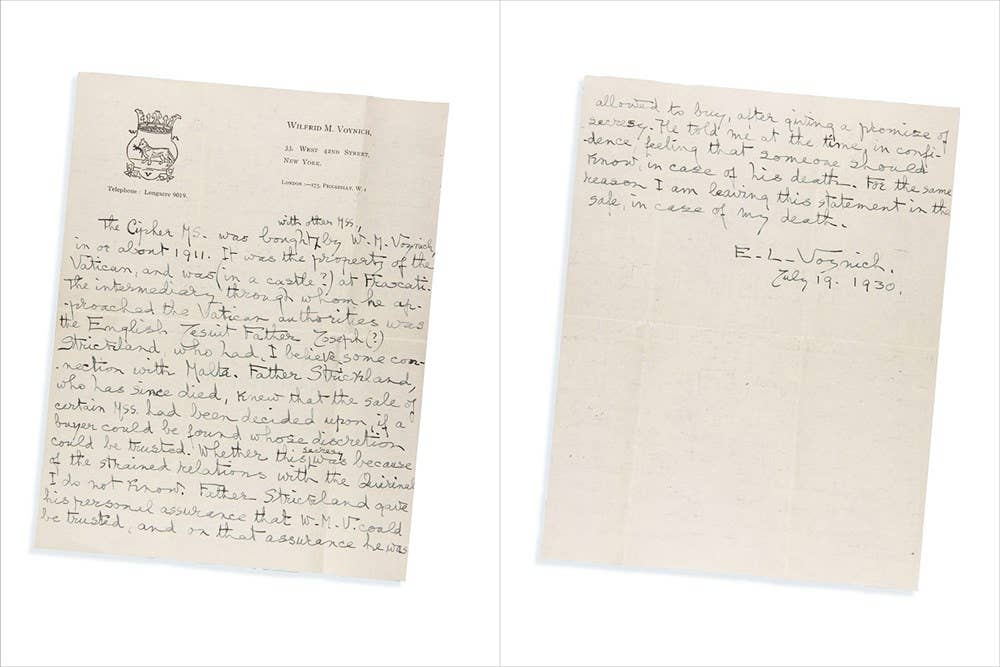 WILFRID M. VOYNICH,
33, WEST 42ND STREET,
NEW YORK.
LONDON :—175, PICCADILLY, W.1
Telephone : Longacre 9019.
with other MSS,
The Cipher MS. was bought by W. M. Voynich,
in or about 1911. It was the property of the
Vatican, and was (in a castle?) at Frascati.
The intermediary through whom he ap-
-proached the Vatican authorities was
the English Jesuit Father Joseph (?)
Strickland, who had, I believe, some con-
-nection with Malta. Father Strickland,
who has since died, knew that the sale of
certain MSS. had been decided upon, if a
buyer could be found whose discretion
could be trusted. Whether this secresy was because
of the strained relations with the Quirinal
I do not know. Father Strickland gave
his personal assurance that W. M. V. could
be trusted, and on that assurance he was
allowed to buy, after giving a promise of
secresy. He told me at the time, in confi-
-dence, feeling that someone should
know, in case of his death. For the same
reason I am leaving this statement in the
safe, in case of my death.
E. L. Voynich.
July 19. 1930.